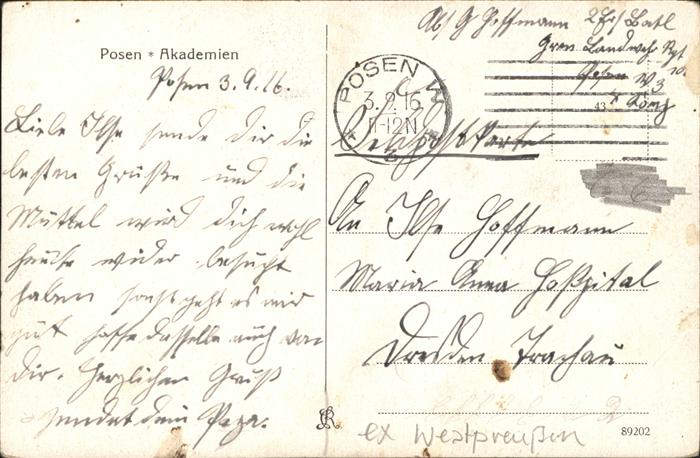 Posen * Akademien
Posen 3.9.16.
Liebe Ilse sende dir die
besten Grüße und die
Muttel wird dich wohl
heute wider besucht
haben sonst geht es mir
gut hoffe dasselbe auch von
dir. Herzlichen Gruß
sendet dein Papa.
Abs G Hoffmann 2 Ers Batl
Gren. Landwehr Rgt
Posen W3
POSEN W.
3.9.16
11-12N
Feldpostkarte
An Ilse Hoffmann
Maria Anna Hoßpital
Dresden Trachau
ex Westpreußen
89202